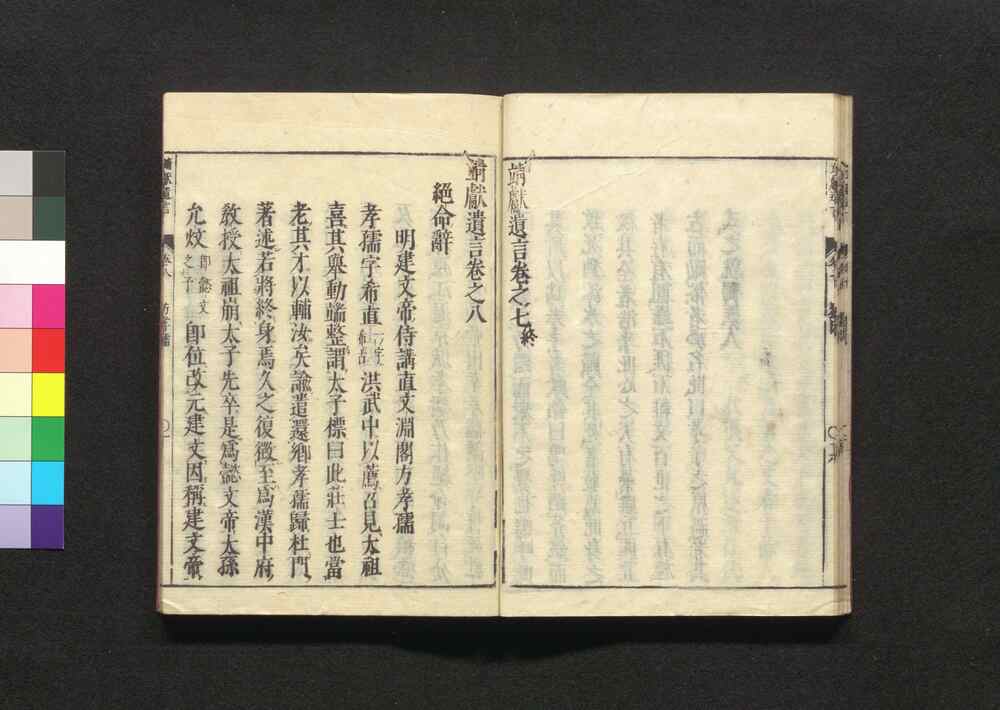 靖獻遺言卷之七終
靖獻遺言卷之八
絕命辭
明建文帝侍講直文淵閣方孝孺
孝孺字希直 洪武中以薦召見太祖
喜其舉動端整謂太子標曰此莊士也當
老其才以輔汝矣諭遣還鄉孝孺歸杜門
著述若將終身焉久之復徵至爲漢中府
敎授太祖崩太子先卒是爲懿文帝太孫
允炆卽懿文之子卽位改元建文因稱建文帝
靖獻遺言 卷八 方孝孺 〇一